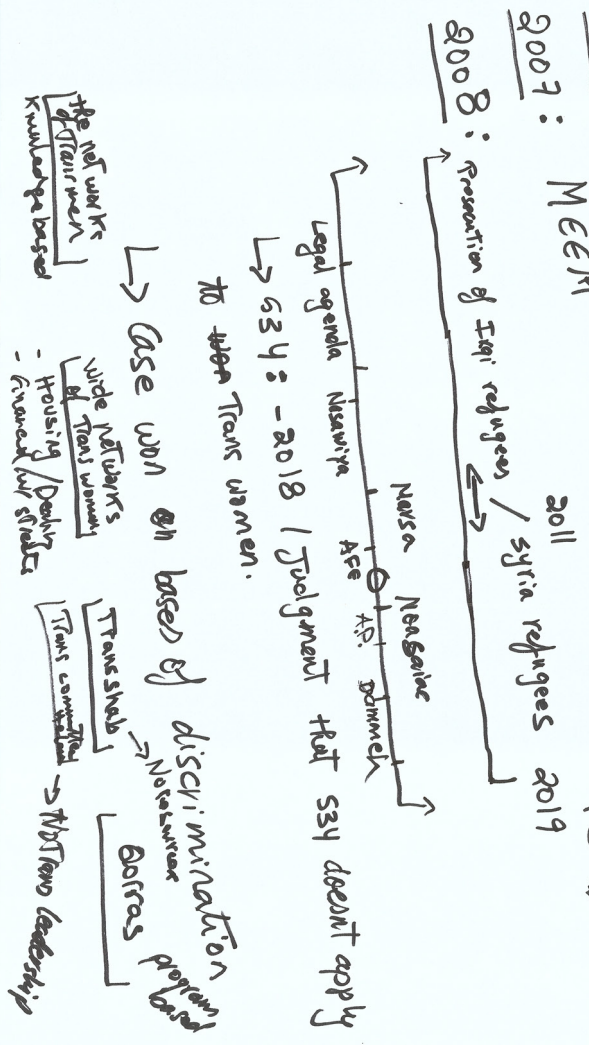 2007: MEEM
2008: Prosecution of Irqi refugees / Syria refugees 2019
2011
Marsa
Legal agenda Nasawiya AFE A.P. Dammeh
↳ 534: - 2018 / Judgment that 534 doesnt apply
to Trans women.
↳ Case won on bases of discrimination
the networks
of Transmen
Knowledge based
Wide networks
of Trans women
- Housing / Dealing
- financial / w/ streets
Transshab
→ No resources
Trans
→ No Trans leadership
Qorras
program
based